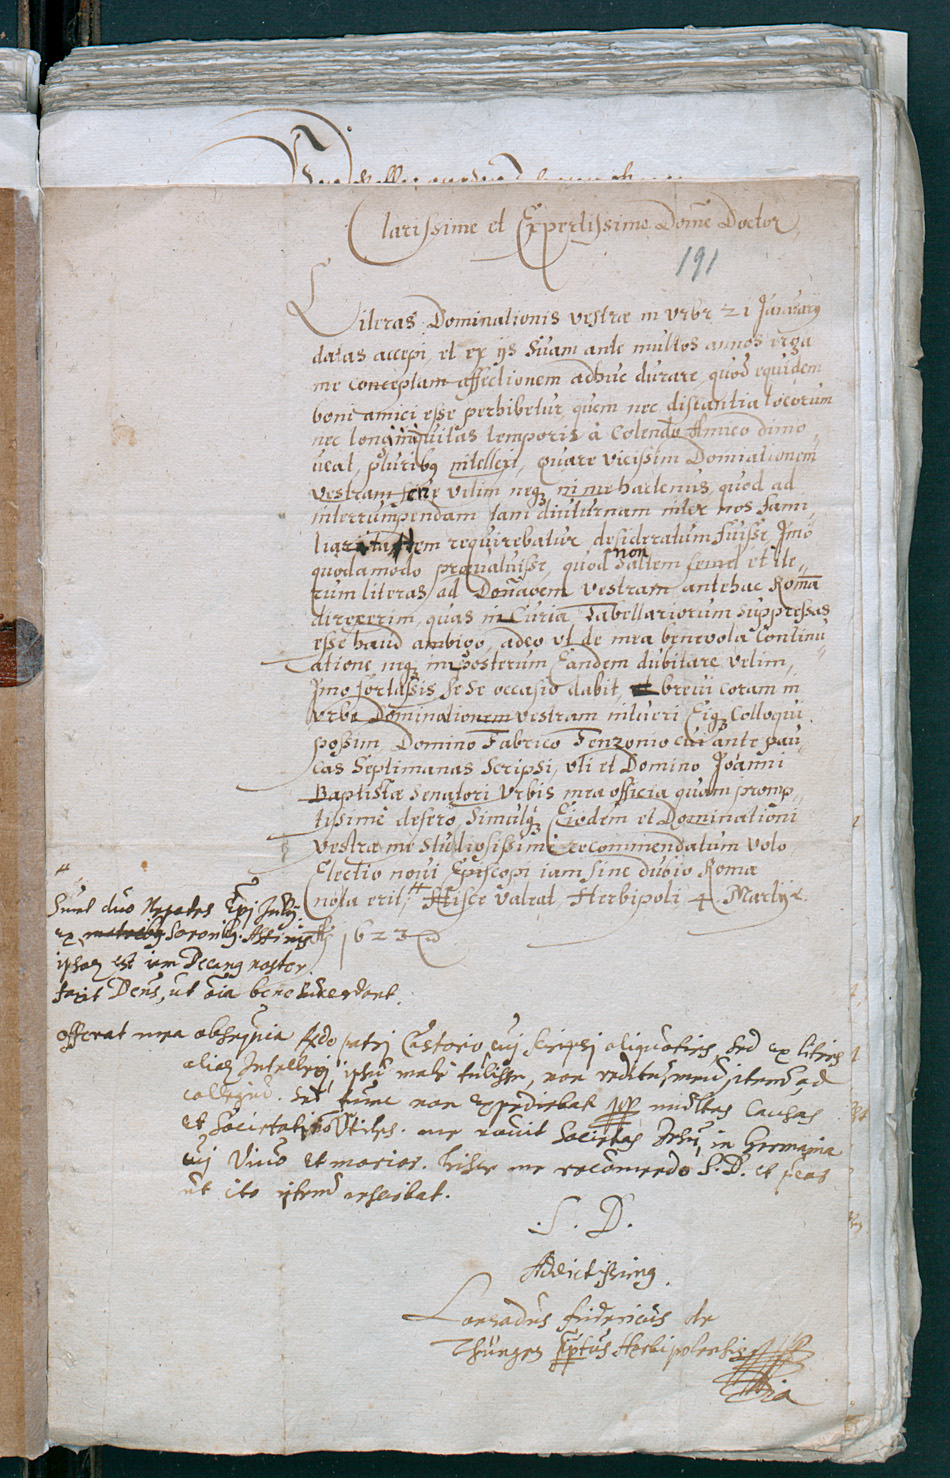 Clarissime et Expertissime Dom̃e Doctor,
191
Literas Dominationis vestræ in vrbe 21 Januarij
datas accepi, et ex ijs Suam ante multos annos erga
me conceptam affectionem adhuc durare, quod equidem
boni amici esse perhibetur, quem nec distantia locorum
nec longinquitas temporis à Colendo Amico dimo„
ueat, pluribq intellexi, Quare vicissim Dominationem
vestram scire velim neq in me hactenus, quod ad
interrumpendam tam diuturnam inter nos Fami„
liaritatem requirebatur desideratum fuisse, Imò
quodamodo præualuisse, quod non saltem semel et ite„
rum literas ad Dom̃aoem vestram antehac Romã
direxerim, quas in Curia Tabellariorum suppressas
esse haud ambigo, adeo vt de mea beneuola Continu„
atione neq in posterum Eandem dubitare velim,
Imo fortassis sese occasio dabit, breui coram in
vrbe Dominationem vestram intueri Eiq Colloqui
possim, Domino Fabrico Tenzonio cui ante pau„
cas Septimanas Scripsi, vti et Domino Joanni
Baptistæ Senatori Vrbis mea officia quam promp„
tissimè defero, Simulq Eiodem et Dominationi
vestræ me studiosissimè recommendatum volo
Electio noui Episcopi iam sine dubio Romæ
nota erit, Hisce Valeat, Herbipoli 4. Martij
1623
Sunt duo Nepotes Epi Julij
ex Sororibq.
ipsoq est iam Decanq noster
faxit Deus, ut oĩa bene succedant.
Offerat mea obsequia Rdo patri Castorio cui scripsi aliquoties, sed ex literis
alioq Intellexi, ipsũ malè tulisse, non reditũ meũ iterũ ad
collegiũ. sed tunc non expediebat multas causas
et Societati utiles. me nouit Societas Jesu in Germania
cui viuo et morior. hisce me recõmendo S. D. et peto
ut cito iterũ rescribat.
S. D.
Addictissimq.
Conradus fridericus de
Thüngen Herbipolensis